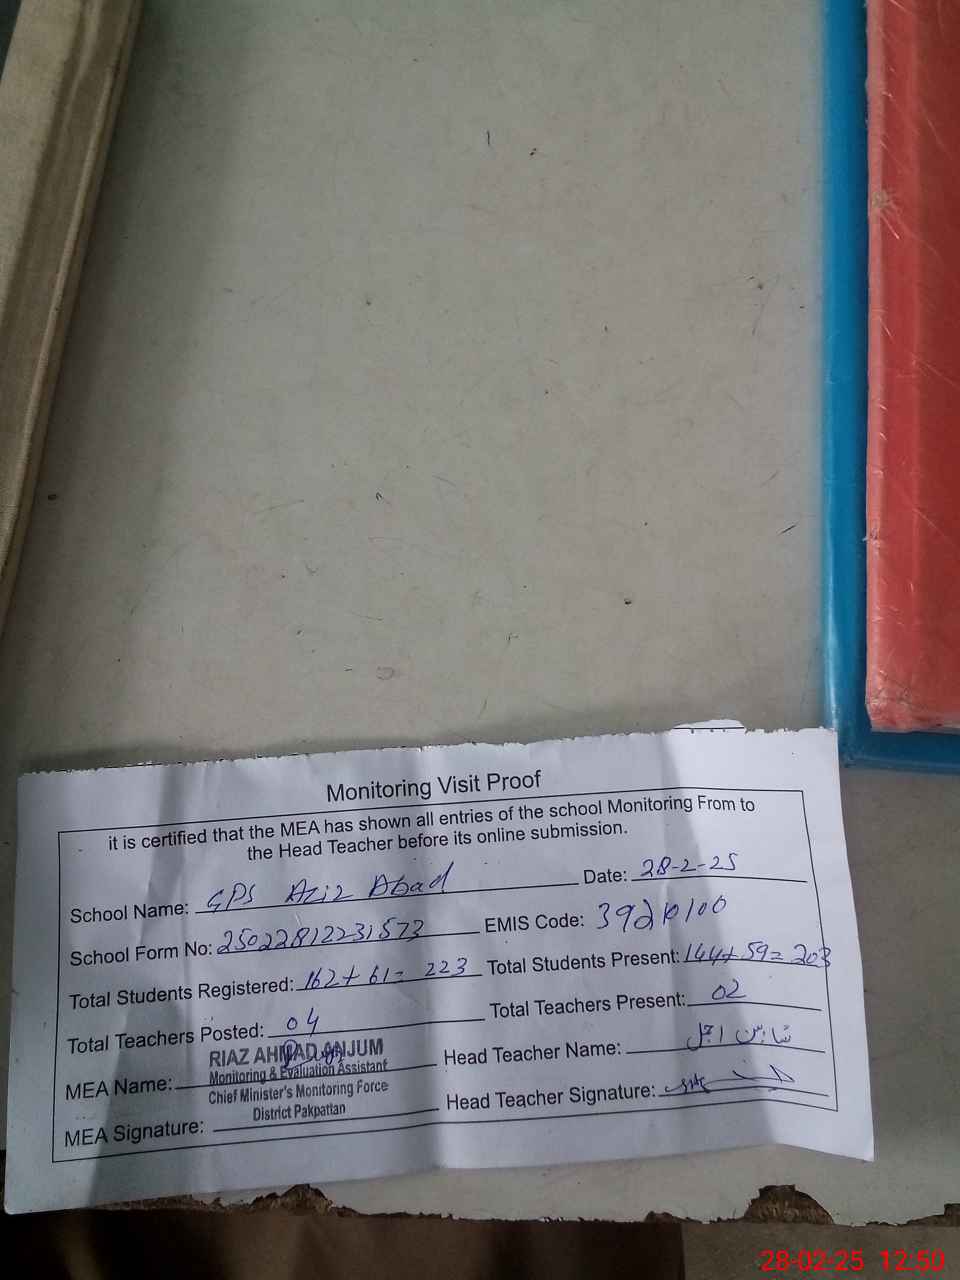 Monitoring Visit Proof
it is certified that the MEA has shown all entries of the school Monitoring From to
the Head Teacher before its online submission.
School Name: GPS Aziz Abad Date: 28-2-25
School Form No: 25022812231573 EMIS Code: 39210100
Total Students Registered: 162+61= 223 Total Students Present: 144+59= 203
Total Teachers Posted: 04 Total Teachers Present: 02
MEA Name: RIAZ AHMAD ANJUM Head Teacher Name:
Monitoring & Evaluation Assistant
Chief Minister's Monitoring Force
District Pakpattan
MEA Signature: Head Teacher Signature:
28-02-25 12:50